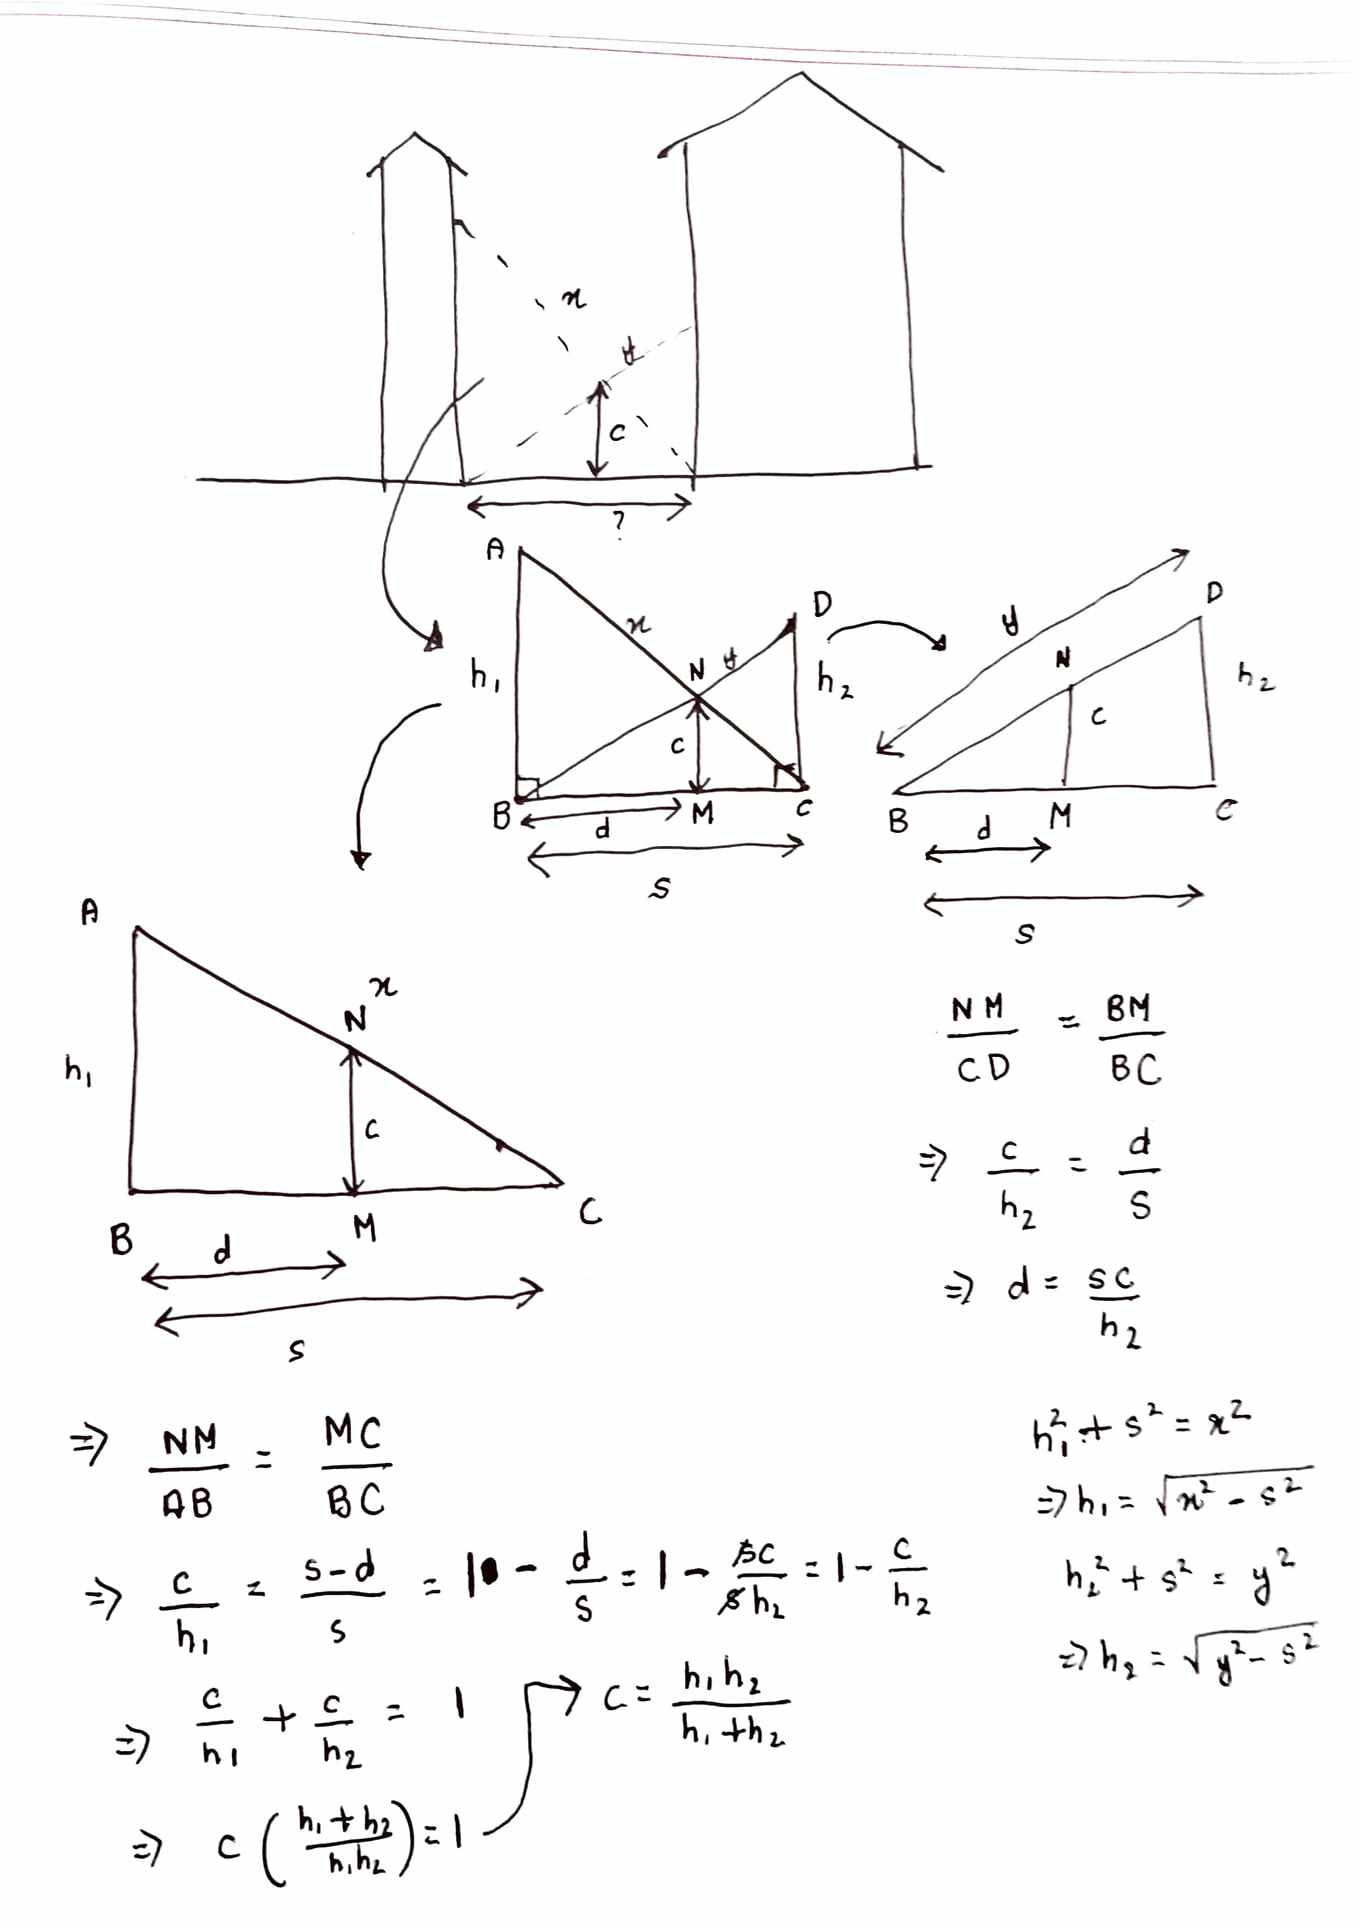 x
y
c
?
A
D
D
x
y
N
y
N
h₁
h₂
h₂
c
c
B
d
M
C
B
d
M
C
s
s
A
x
N
h₁
c
B
d
M
C
s
NM/CD = BM/BC
⇒ c/h₂ = d/s
⇒ d = sc/h₂
⇒ NM/AB = MC/BC
⇒ c/h₁ = (s-d)/s = 1 - d/s = 1 - sc/sh₂ = 1 - c/h₂
⇒ c/h₁ + c/h₂ = 1
⇒ c((h₁+h₂)/h₁h₂) = 1
c = h₁h₂/(h₁+h₂)
h₁² + s² = x²
⇒ h₁ = √(x² - s²)
h₂² + s² = y²
⇒ h₂ = √(y² - s²)